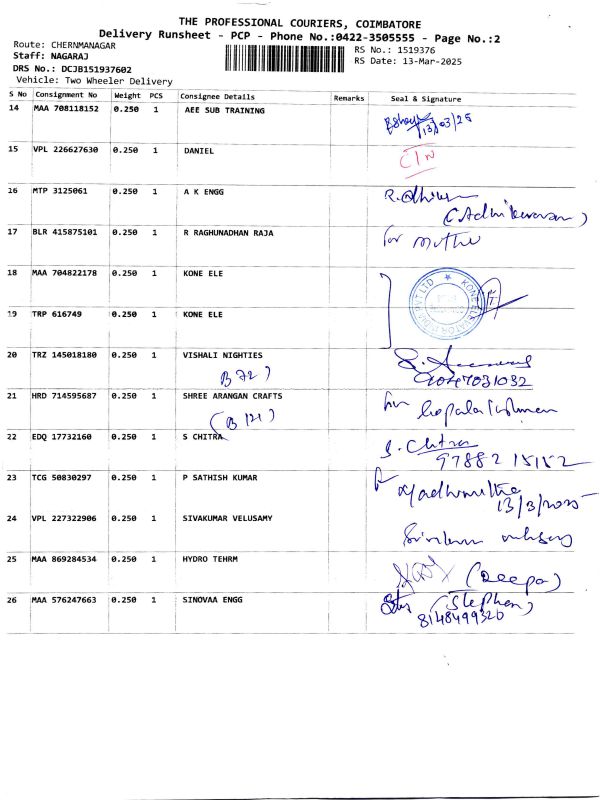 THE PROFESSIONAL COURIERS, COIMBATORE
Delivery Runsheet - PCP - Phone No.:0422-3505555 - Page No.:2
Route: CHERNMANAGAR
RS No.: 1519376
Staff: NAGARAJ
RS Date: 13-Mar-2025
DRS No.: DCJB151937602
Vehicle: Two Wheeler Delivery
S No Consignment No Weight PCS Consignee Details Remarks Seal & Signature
14 MAA 708118152 0.250 1 AEE SUB TRAINING
13/03/25
15 VPL 226627630 0.250 1 DANIEL
16 MTP 3125061 0.250 1 A K ENGG
17 BLR 415875101 0.250 1 R RAGHUNADHAN RAJA
for
18 MAA 704822178 0.250 1 KONE ELE
19 TRP 616749 0.250 1 KONE ELE
20 TRZ 145018180 0.250 1 VISHALI NIGHTIES
B 72)
21 HRD 714595687 0.250 1 SHREE ARANGAN CRAFTS
(B 121)
22 EDQ 17732160 0.250 1 S CHITRA
S. Chitra
97882 15152
23 TCG 50830297 0.250 1 P SATHISH KUMAR
13/3/2025
24 VPL 227322906 0.250 1 SIVAKUMAR VELUSAMY
25 MAA 869284534 0.250 1 HYDRO TEHRM
(Deepa)
26 MAA 576247663 0.250 1 SINOVAA ENGG
(Stephen)
8148499320